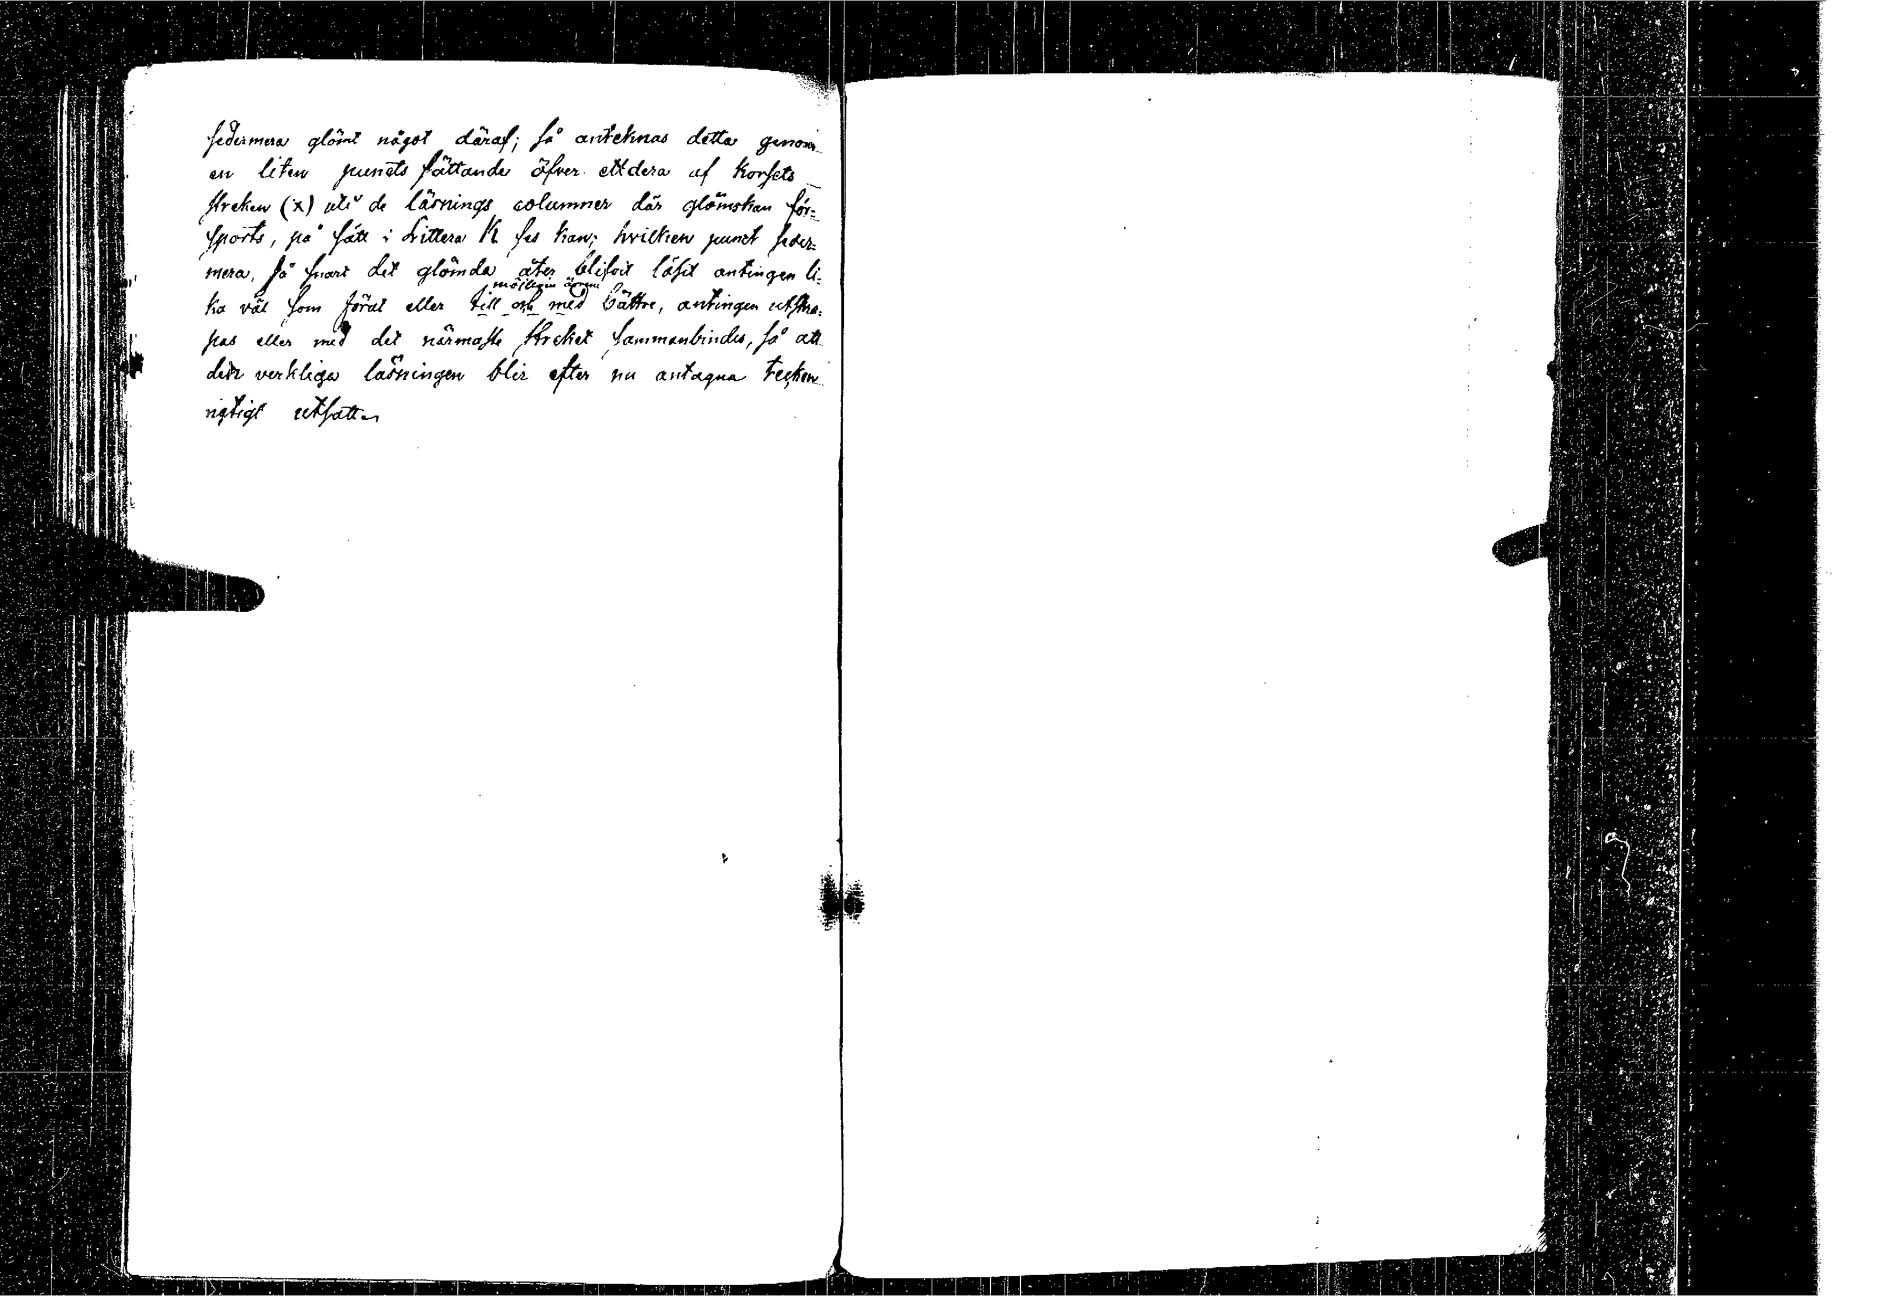 sedermera glömt något däraf; så antecknas detta genom
en liten puncts sättande öfver ettdera af korsets
streken (x) uti de läsnings columner där glömskan för-
sports, på sätt i Littera K ses kan; hvilken punct seder-
mera, så snart det glömda åter blifvit läsit antingen li-
möjligen ännu
ka väl som förut eller till och med bättre, antingen utskra-
pas eller med det närmaste strecket sammanbindes, så att
den verkliga läsningen blir efter nu antagna tecken
rigtigt utsatt